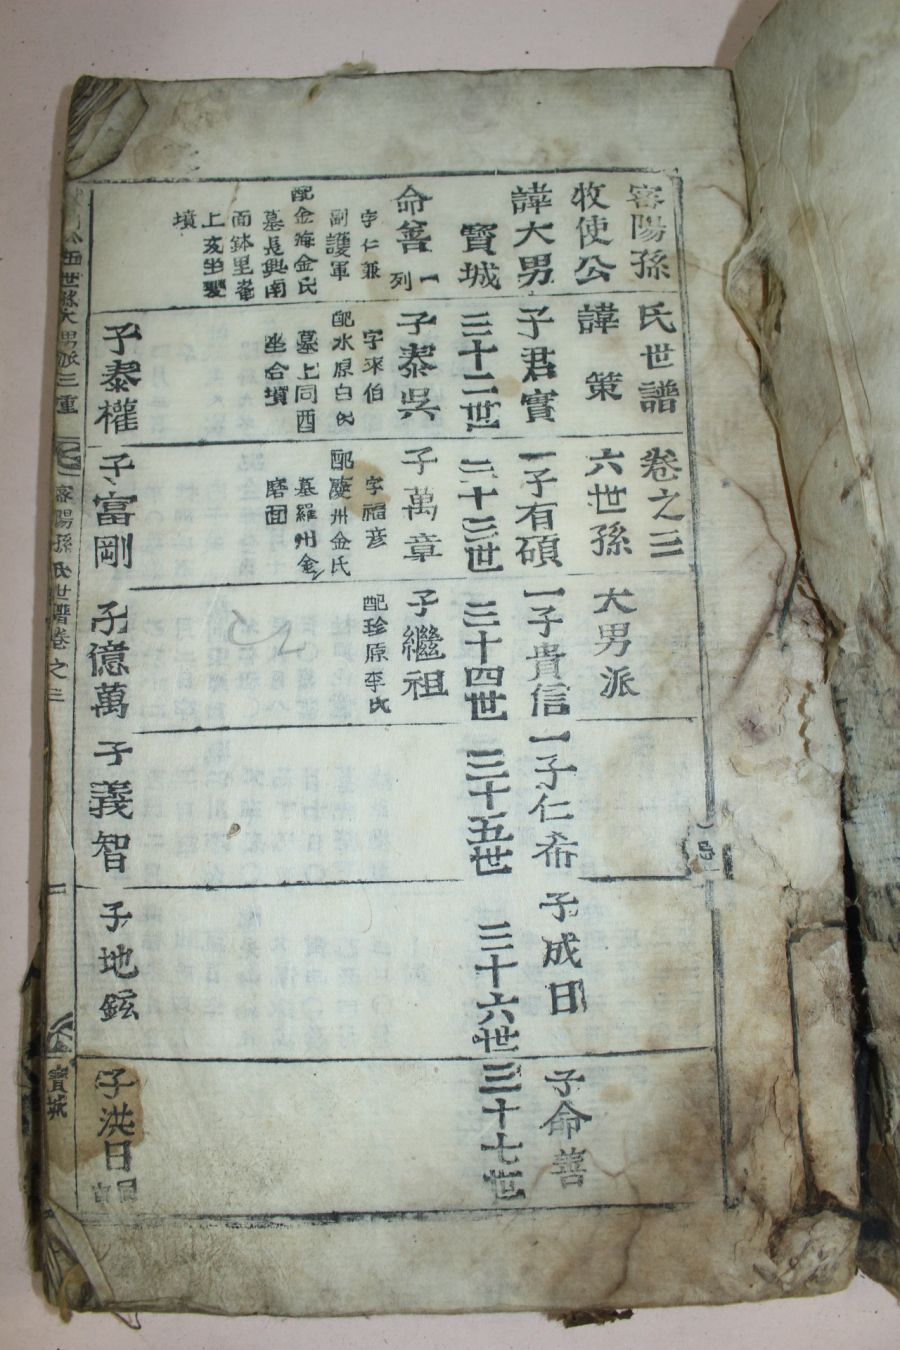 密陽孫氏世譜卷之三
牧使公諱策六世孫大男派
諱大男子君實一子有碩一子貴信一子仁希子成日子命善
寶城三十二世三十三世三十四世三十五世三十六世三十七世
命善一列子泰吳子萬章子繼祖
字仁兼
副護軍
配金海金氏
墓長興南
面鉢里峯
上亥坐雙
墳
字來伯
配水原白氏
墓上同酉
坐合墳
字福彦
配慶州金氏
墓羅州金
磨面
配珍原李氏
子泰權子富剛子億萬子義智子地鉉子洪日
世孫大男派三重
密陽孫氏世譜卷之三
寶城